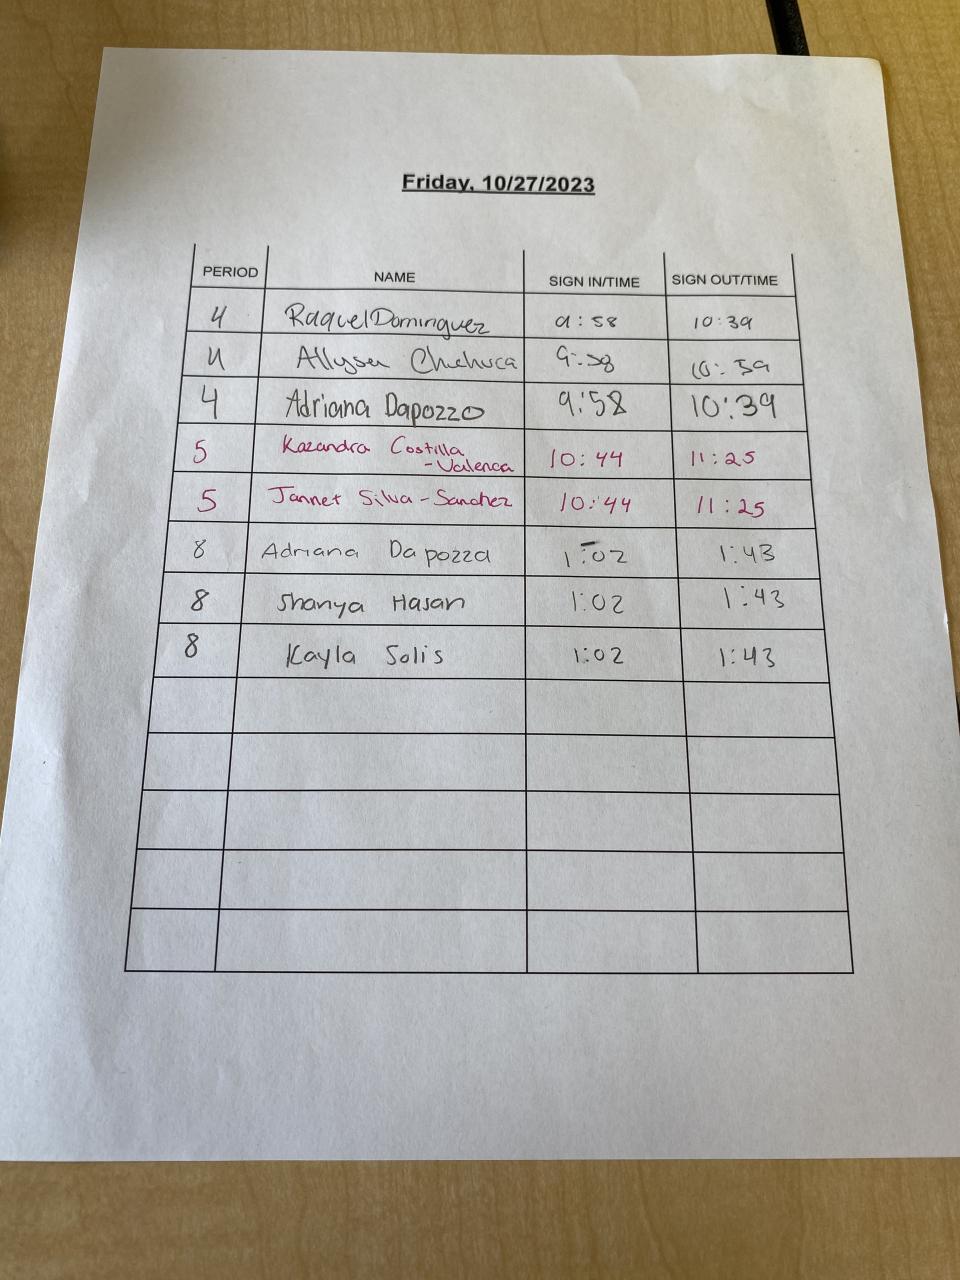 Friday, 10/27/2023
PERIOD NAME SIGN IN/TIME SIGN OUT/TIME
4 Raquel Dominguez 9:58 10:39
4 Allysa Chuhuca 9:58 10:39
4 Adriana Dapozzo 9:58 10:39
5 Kazandra Costilla
-Valenca 10:44 11:25
5 Jannet Silva-Sanchez 10:44 11:25
8 Adriana Dapozzo 1:02 1:43
8 Shanya Hasan 1:02 1:43
8 Kayla Solis 1:02 1:43